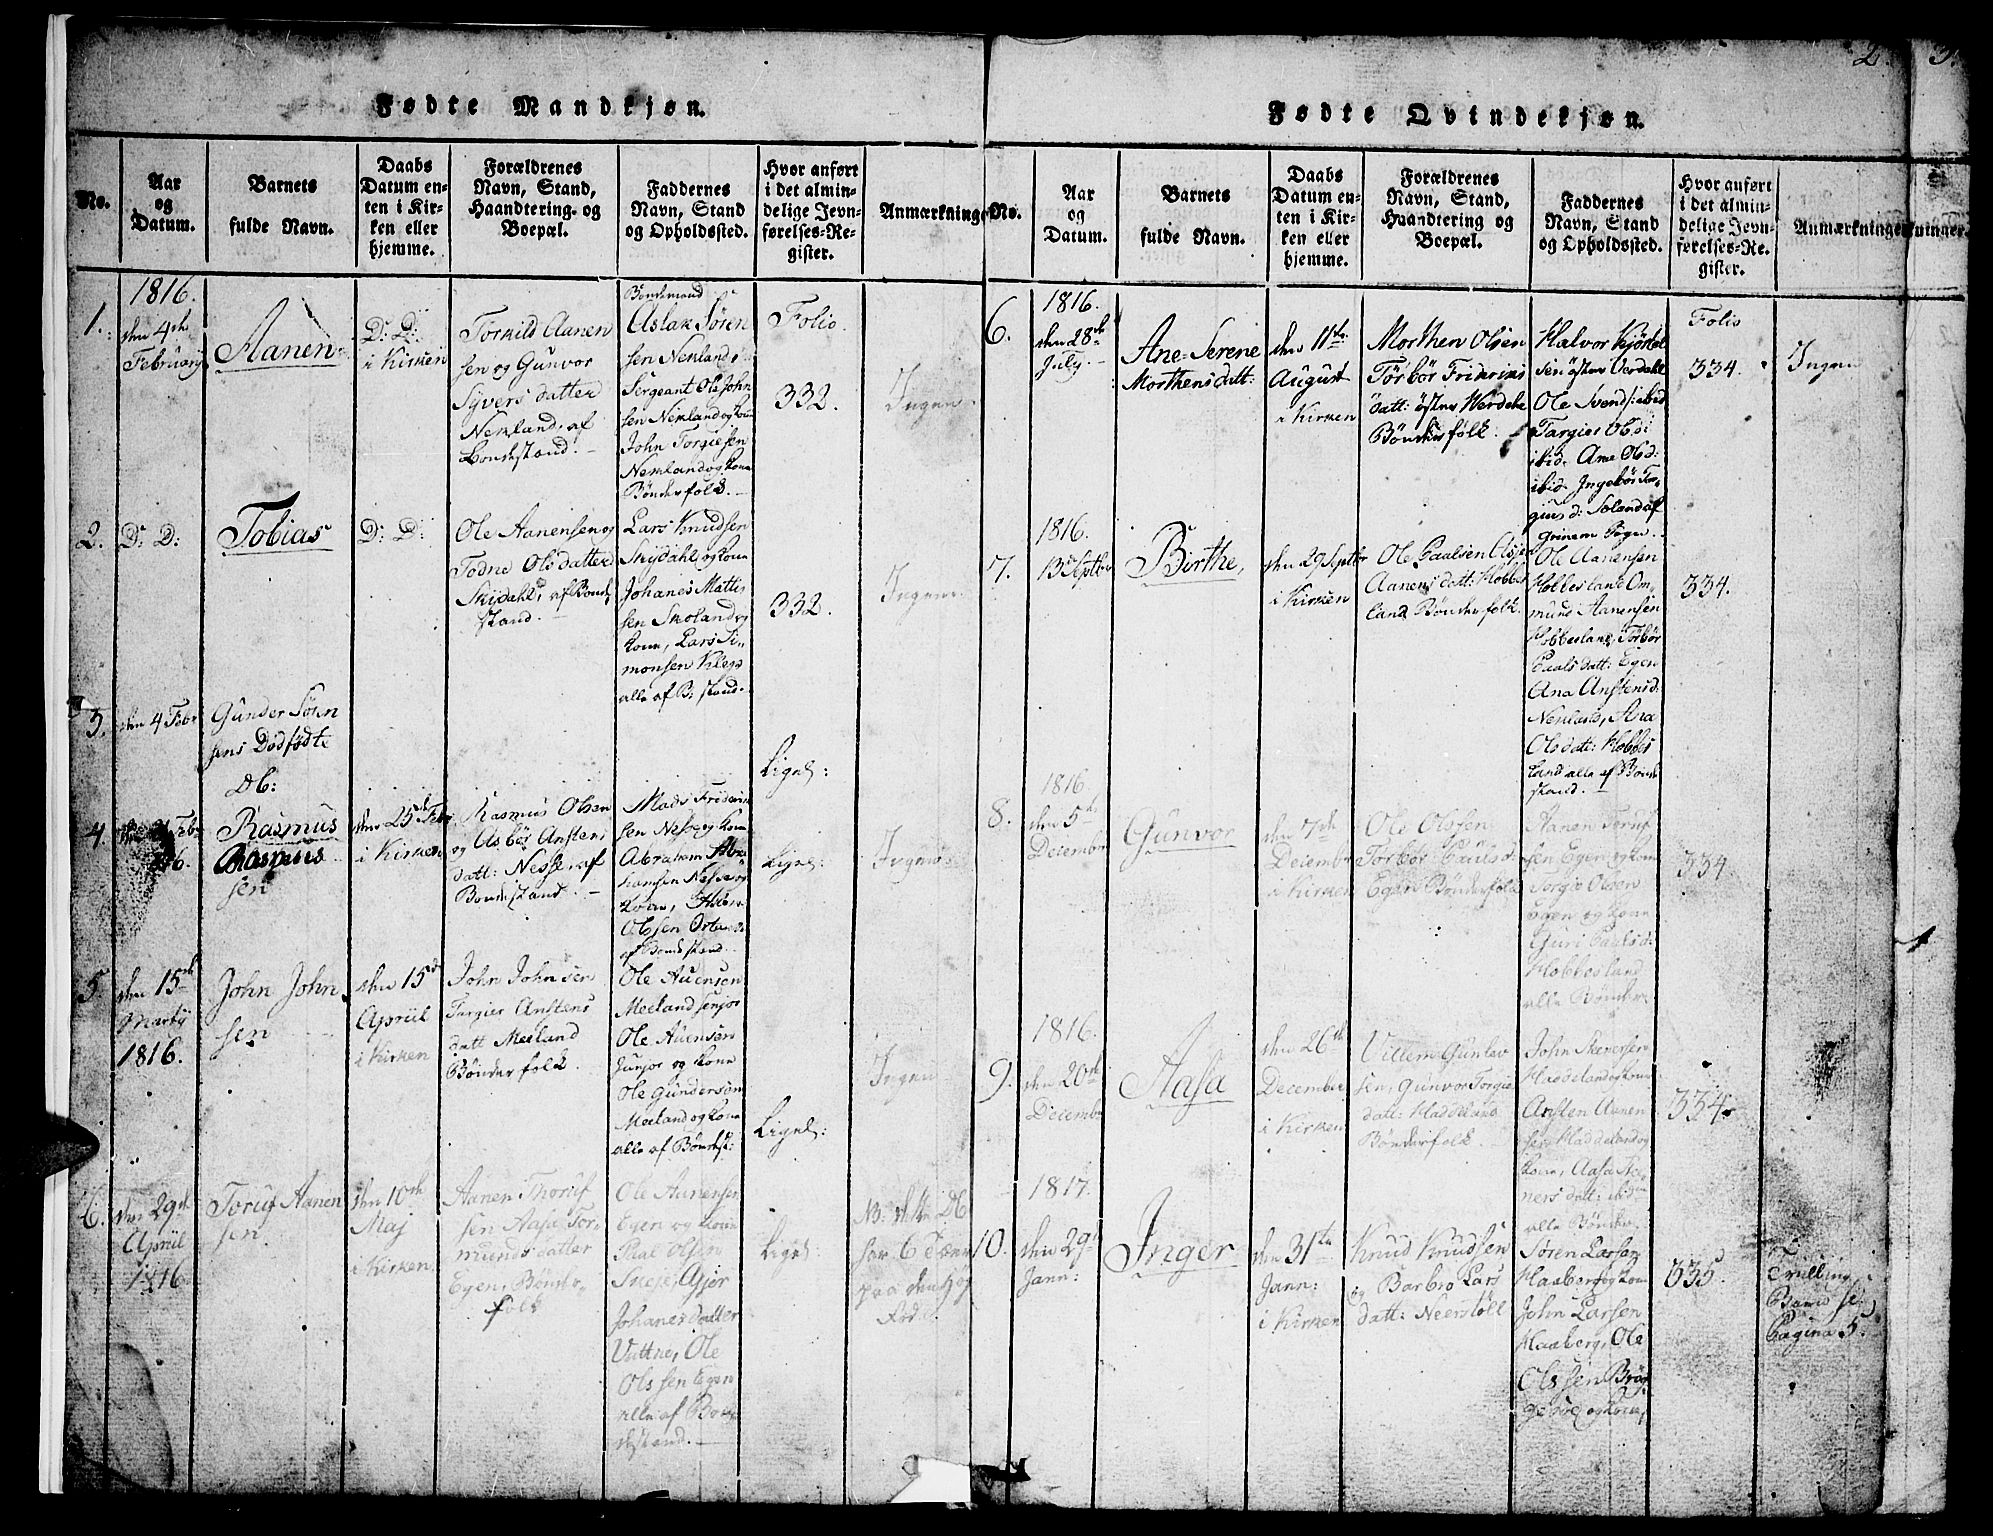 2. 3.
Fødte Mandkjøn.
No.
Aar
og
Datum.
Barnets
fulde Navn.
Daabs
Datum en-
ten i Kir-
ken eller
hjemme.
Forældrenes
Navn, Stand,
Haandtering og
Boepæl.
Faddernes
Navn, Stand
og Opholdssted.
Hvor anført
i det almin-
delige Jevn-
førelses-Re-
gister.
Anmærkninger
1.
1816.
den 4de
February
Aanen
D: D:
i Kirken
Torkild Aanen
sen og Gunvor
Syvers datter
Nemland, af
Bondestand.
Bondemand
Aslak Søren
sen Nemland
Sergeant Ole John
sen Nemland og kone
John Torgiesen
Nemland og kone
Bønderfolk.
Folio
332.
Ingen
2.
D: D:
Tobias
D: D:
Ole Aanensen og
Todne Olsdatter
Skifdahl, af Bonde
stand.
Lars Knudsen
Skifdahl og kone
Johanes Mattis
sen Skoland og
kone, Lars Si-
monsen Kleps
alle af B: stand.
332.
Ingen
3.
den 4 Febr
Gunder Søren
sens Dødfødte
Db:
Lignes:
4.
Febr
Rasmus
Rasmus
sen
den 25de Febr
i Kirken
Rasmus Olsen
og Asbør Anstens
datt: Nesse, af
Bondestand.
Mads Friderich
sen Nesse og kone
Abraham Abra
hamsen Nesse og
kone,
Olssen
af Bondestand.
Lignes:
Ingen
5.
den 15de
Martij
1816.
John John
sen
den 15de
Apriil
i Kirken
John Johnsen
Targier Anstens
datt Meeland
Bønderfolk.
Ole Auensen
Meeland senjor
Ole Auensen
Junjor og kone
Ole Gundersen
Meeland og kone
alle af Bondest:
Ingen
Lignes:
6.
den 29de
Apriil
1816
Toruf Aanen
sen
den 10de
Maj
i Kirken
Aanen Thoruf
sen Aasa Tor-
munds datter
Egen, Bønder-
folk
Ole Aanensen
Egen og kone
Paal Olsen
Asjør
Johanes datter
Vattne, Ole
Olssen Egen
alle af Bon
destand.
Lignes
NB: dette Db
har 6 Tæer
paa den
Fod
Fødte Qvindekjøn.
No.
Aar
og
Datum.
Barnets
fulde Navn.
Daabs
Datum en-
ten i Kir-
ken eller
hjemme.
Forældrenes
Navn, Stand,
Haandtering og
Boepæl.
Faddernes
Navn, Stand
og Opholdssted.
Hvor anført
i det almin-
delige Jevn-
førelses-Re-
gister.
Anmærkninger
6.
1816.
den 28de
July
Ane Serene
Morthensdatt:
den 11te
August
i Kirken
Morthen Olsen
Tørbør Fridrics
datt: østre Verdahl
Bønderfolk
Halvor Kjøstel
sen østre Verdahl
Ole Svends: ibid
Targier Olsd:
ibid. Ane Olsd:
ibid. Ingebør Tor-
giusd: Soland af
Grinem Sogn.
Folio
334.
Ingen
7.
1816.
13 Septbr
Birthe,
den 29 Septbr
i Kirken
Ole Paalsen
Aanens datt: Hobbes
land Bønderfolk.
Ole Aanensen
Hobbesland Om
mund Aanensen
Hobbesland, Tørbør
Paals datt: Egen
Ana Anstensd:
Nemland, Ana
Olsdatt: Hobbes
land alle af Bonde
stand.
334.
8.
1816.
den 5te
December
Gunvor
den 7de
December
i Kirken
Ole Olssen
Torbør Paulsd:
Egen Bønderfolk
Aanen Toruf
sen Egen og kone
Torgie Olsen
Egen og kone
Guri Paalsd:
Hobbesland
alle Bønder
334
9.
1816.
den 20de
December
Aasa
den 26de
December
i Kirken
Villem Gunlev
sen, Gunvor Torgie
datt: Haddeland
Bønderfolk.
John
Haddeland og kone
Ansten Aanen
sen Haddeland og
kone, Aasa
datt: ibidem
alle Bønder
334.
10.
1817.
den 29de
Jann:
Inger
den 31te
Jann:
i Kirken
Knud Knudsen
og Barbro Lars
datt: Neerstøll
Søren Larsen
Haaberg og kone
John Larsen
Haaberg, Ole
Olssen
og kone,
335.
Trilling
Barn se
Pagina 5.